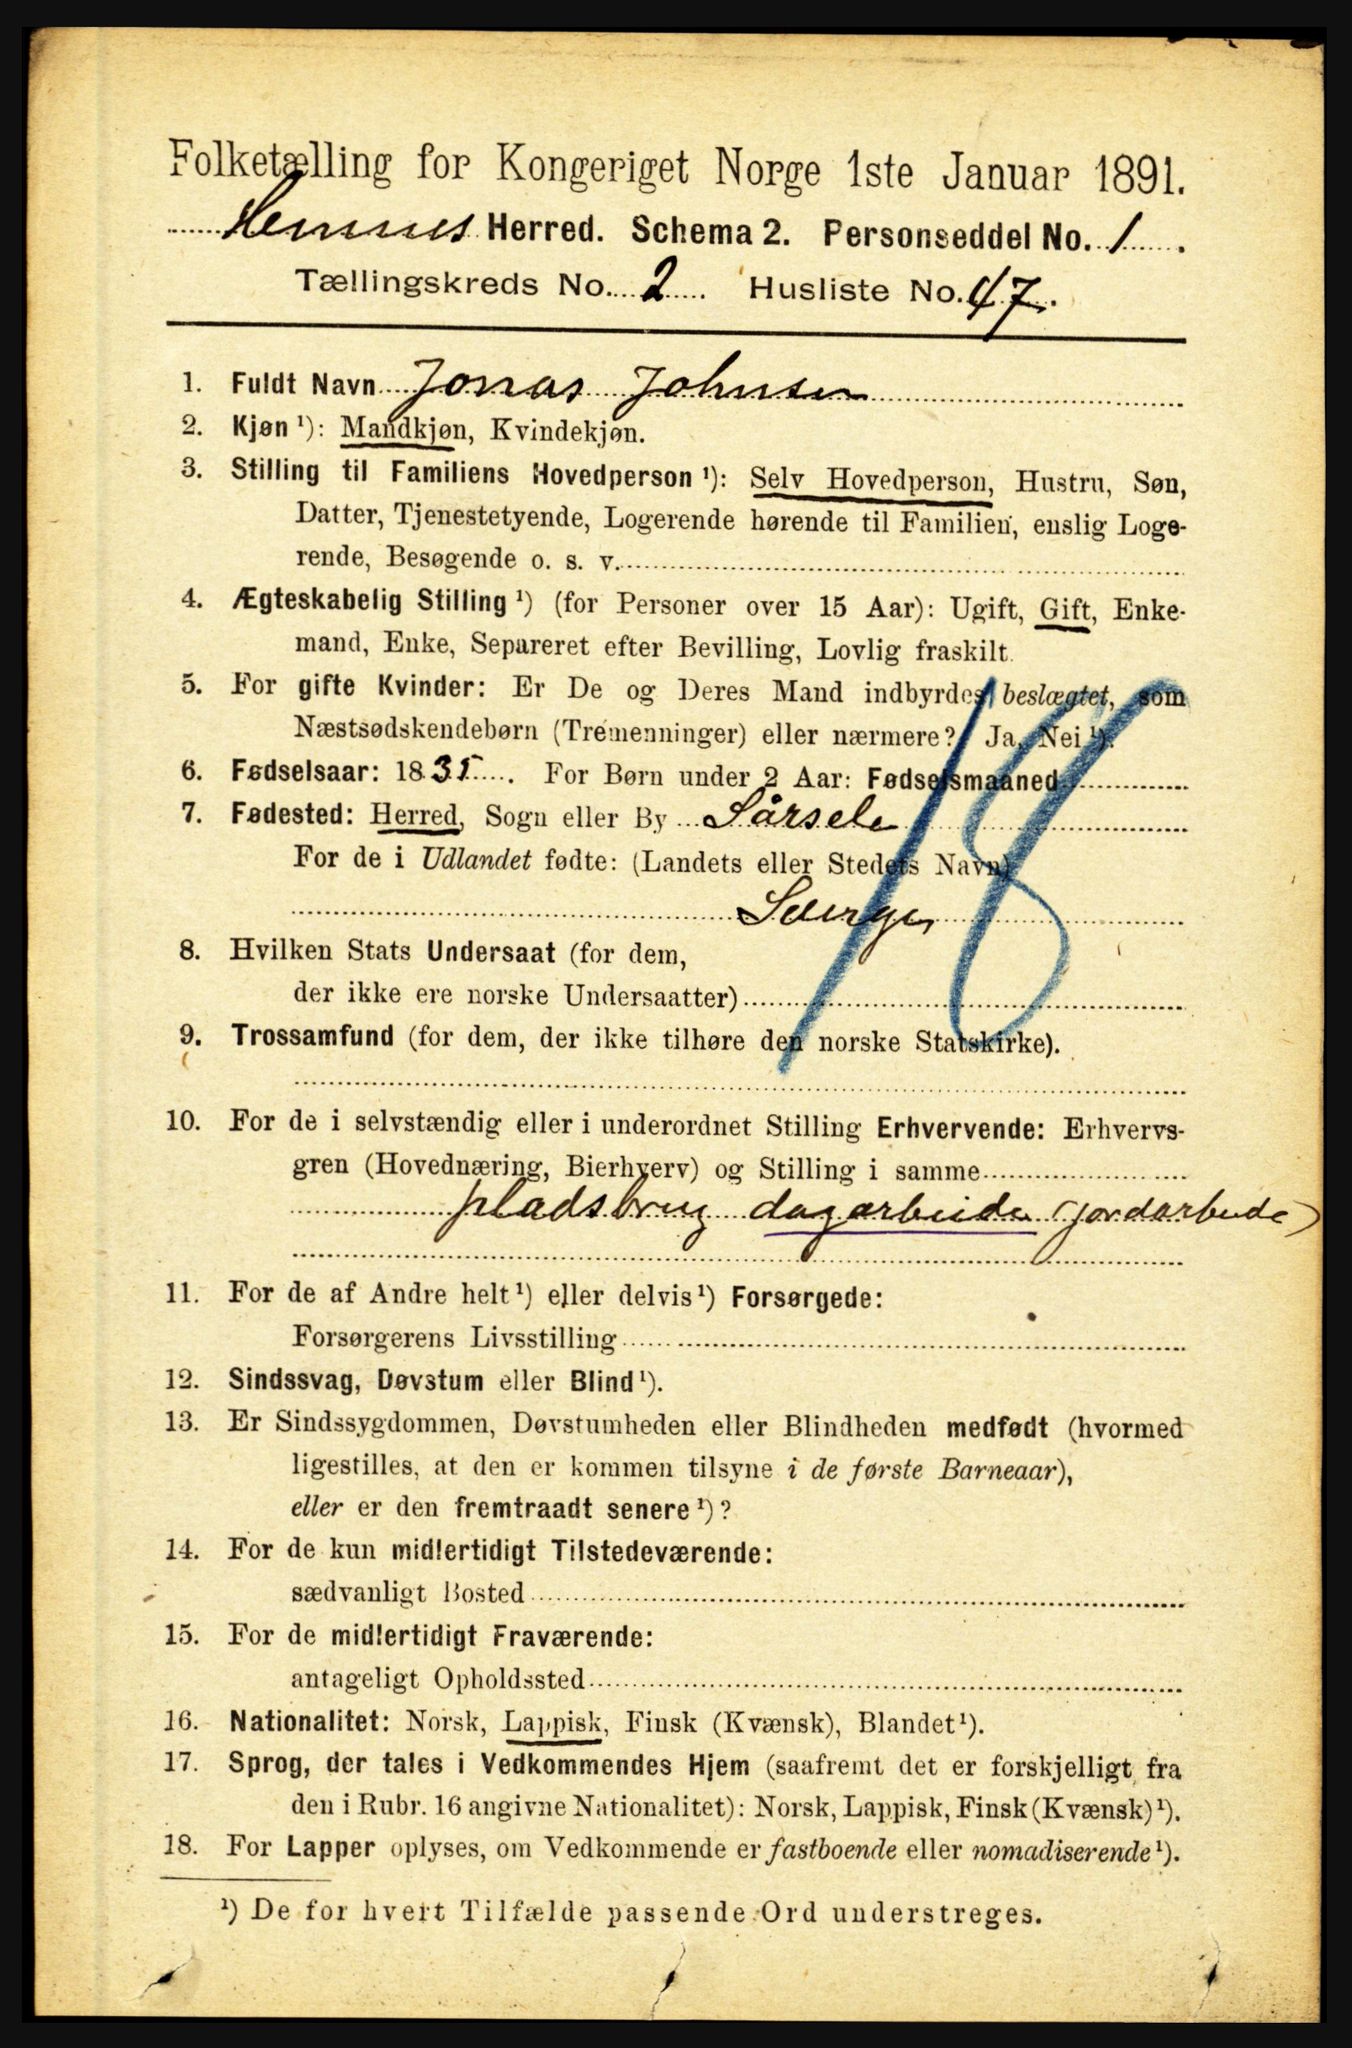 Folketælling for Kongeriget Norge 1ste Januar 1891.
Hemnes Herred. Schema 2. Personseddel No. 1.
Tællingskreds No. 2. Husliste No. 47.
1. Fuldt Navn Jonas Johnsen
2. Kjøn ¹): Mandkjøn, Kvindekjøn.
3. Stilling til Familiens Hovedperson ¹): Selv Hovedperson, Hustru, Søn,
Datter, Tjenestetyende, Logerende hørende til Familien, enslig Loge-
rende, Besøgende o. s. v.
4. Ægteskabelig Stilling ¹) (for Personer over 15 Aar): Ugift, Gift, Enke-
mand, Enke, Separeret efter Bevilling, Lovlig fraskilt.
5. For gifte Kvinder: Er De og Deres Mand indbyrdes beslægtet, som
Næstsødskendebørn (Tremenninger) eller nærmere? Ja, Nei ¹).
6. Fødselsaar: 1835. For Børn under 2 Aar: Fødselsmaaned
7. Fødested: Herred, Sogn eller By Sårsele
For de i Udlandet fødte: (Landets eller Stedets Navn)
Sverge
18
8. Hvilken Stats Undersaat (for dem,
der ikke ere norske Undersaatter)
9. Trossamfund (for dem, der ikke tilhøre den norske Statskirke).
10. For de i selvstændig eller i underordnet Stilling Erhvervende: Erhvervs-
gren (Hovednæring, Bierhverv) og Stilling i samme
pladsbrug dagarbeide (jordarbeide)
11. For de af Andre helt ¹) eller delvis ¹) Forsørgede:
Forsørgerens Livsstilling
12. Sindssvag, Døvstum eller Blind ¹).
13. Er Sindssygdommen, Døvstumheden eller Blindheden medfødt (hvormed
ligestilles, at den er kommen tilsyne i de første Barneaar),
eller er den fremtraadt senere ¹)?
14. For de kun midlertidigt Tilstedeværende:
sædvanligt Bosted
15. For de midlertidigt Fraværende:
antageligt Opholdssted
16. Nationalitet: Norsk, Lappisk, Finsk (Kvænsk), Blandet ¹).
17. Sprog, der tales i Vedkommendes Hjem (saafremt det er forskjelligt fra
den i Rubr. 16 angivne Nationalitet): Norsk, Lappisk, Finsk (Kvænsk) ¹).
18. For Lapper oplyses, om Vedkommende er fastboende eller nomadiserende ¹).
¹) De for hvert Tilfælde passende Ord understreges.